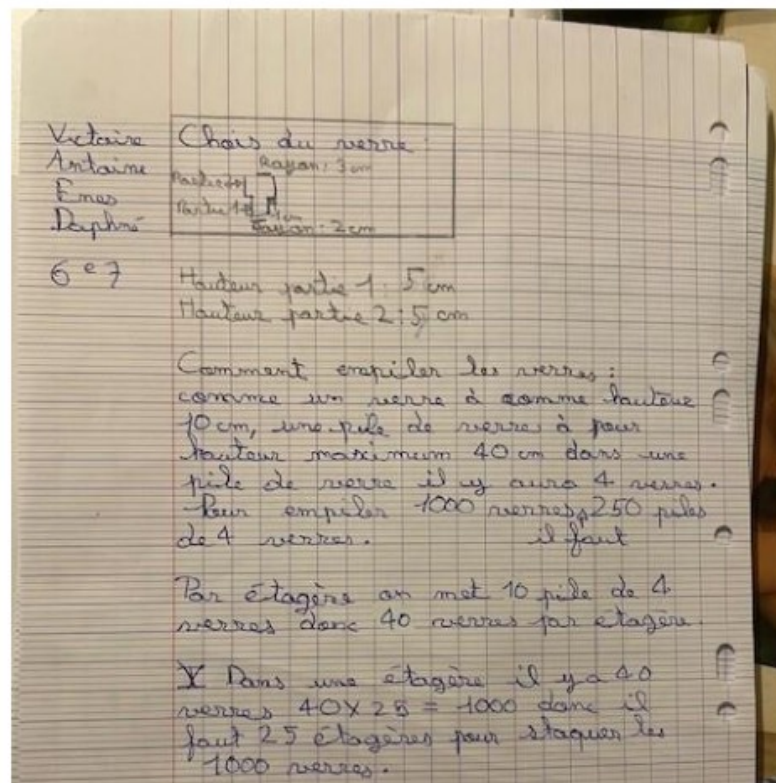 Victoire
Antoine
Enas
Daphné
6e7
Choix du verre :
Rayon : 3 cm
Partie 2
Partie 1
1cm
Rayon : 2 cm
Hauteur partie 1 : 5 cm
Hauteur partie 2 : 5 cm
Comment empiler les verres :
comme un verre à comme hauteur
10 cm, une pile de verres à pour
hauteur maximum 40 cm dans une
pile de verre il y aura 4 verres.
Pour empiler 1000 verres, 250 piles
de 4 verres. il faut
Par étagère on met 10 pile de 4
verres donc 40 verres par étagère.
Dans une étagère il y a 40
verres 40 X 25 = 1000 donc il
faut 25 étagères pour staquer les
1000 verres.